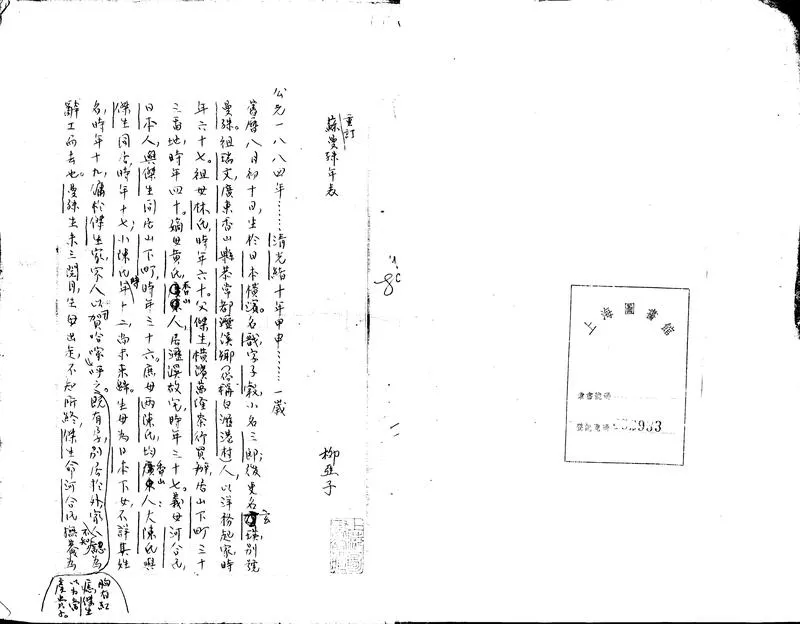 重訂
蘇曼殊年表
柳亞子
公元一八八四年……清光緒十年甲申……一歲
舊曆八月初十日，生於日本橫濱。名戩，字子穀，小名三郎，後更名玄瑛，別號
曼殊。祖瑞文，廣東香山縣恭常都瀝溪鄉（俗稱白瀝港村）人，以洋務起家，時
年六十七。祖母林氏，時年六十。父傑生，橫濱萬隆茶行買辦，居山下町三十
三番地，時年四十。嫡母黃氏，香山人，居瀝溪故宅，時年三十七。義母河合氏，
日本人，與傑生同居山下町，時年三十六。庶母兩陳氏，均香山人：大陳氏與
傑生同居，時年十七；小陳氏時年十二，尚未來歸。生母為日本下女，不詳其姓
名，時年十九，傭於傑生家，家人以賀哈嗲呼之。既有孕，別居於外，家人不知
辭工而去也。曼殊生未三閱月，生母出走，不知所終，傑生命河合氏撫養為
胸有紅
痣，傑生
以為
產貴子。
圖書館
隶書號碼
登記號碼